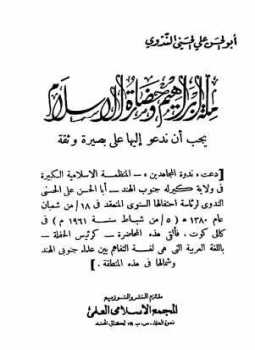 أبو الحسن علي الحسني الندوي
ملة إبراهيم وحضارة الإسلام
يجب أن ندعو إليها على بصيرة وثقة
[ دعت « ندوة المجاهدين » - المنظمة الاسلامية الكبيرة
في ولاية كيرله جنوب الهند - أبا الحسن علي الحسني
الندوي لرئاسة احتفالها السنوي المنعقد في ١٨/ من شعبان
عام ١٣٨٠ هـ ( ٥/ من شباط سنة ١٩٦١ م ) في
كالي كوت ، فألقى هذه المحاضرة - كرئيس الحفلة -
باللغة العربية التي هي لغة التفاهم بين علماء جنوبي الهند
وشمالها في هذه المنطقة . ]
ملتزم النشر والتوزيع
المجمع الاسلامي العلمي
ندوة العلماء ، ص . ب ١١٩ لكهنؤ الهند